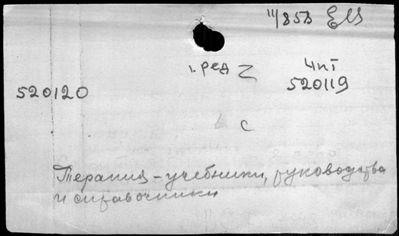 1. ред Z
чит
520119
520120
с
Терапия - учебники, руководства
и справочники